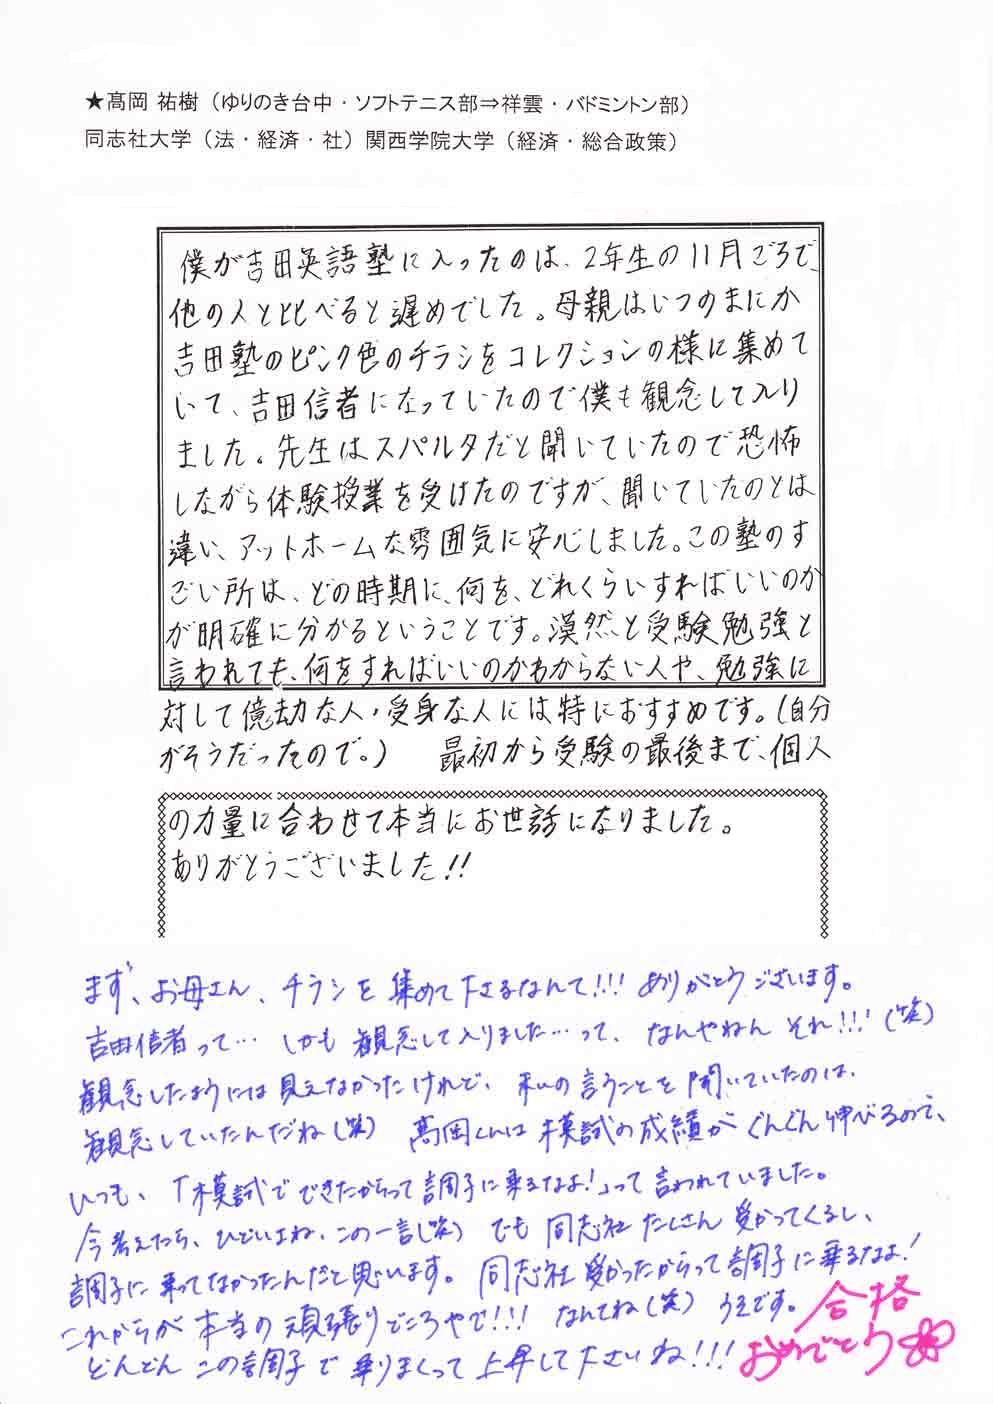 ★髙岡 祐樹（ゆりのき台中・ソフトテニス部⇒祥雲・バドミントン部）
同志社大学（法・経済・社）関西学院大学（経済・総合政策）
僕が吉田英語塾に入ったのは、2年生の11月ごろで、
他の人と比べると遅めでした。母親はいつのまにか
吉田塾のピンク色のチラシをコレクションの様に集めて
いて、吉田信者になっていたので僕も観念して入り
ました。先生はスパルタだと聞いていたので恐怖
しながら体験授業を受けたのですが、聞いていたのとは
違い、アットホームな雰囲気に安心しました。この塾のす
ごい所は、どの時期に、何を、どれくらいすればいいのか
が明確に分かるということです。漠然と受験勉強と
言われても、何をすればいいのかわからない人や、勉強に
対して億劫な人・受身な人には特におすすめです。（自分
がそうだったので。） 最初から受験の最後まで、個人
の力量に合わせて本当にお世話になりました。
ありがとうございました!!
まず、お母さん、チラシを集めて下さるなんて!!! ありがとうございます。
吉田信者って… しかも観念して入りました…って、なんやねん それ!!!（笑）
観念したようには見えなかったけれど、私の言うことを聞いていたのは、
観念していたんだね（笑） 髙岡くんは模試の成績がぐんぐん伸びるので、
いつも、「模試でできたからって調子に乗るなよ!」って言われていました。
今考えたら、ひどいよね、この一言（笑） でも同志社たくさん受かってくるし、
調子に乗ってなかったんだと思います。同志社受かったからって調子に乗るなよ!
これからが本当の頑張りどころやで!!! なんてね（笑） うそです。
どんどんこの調子で乗りまくって上昇して下さいね!!!
合格
おめでとう